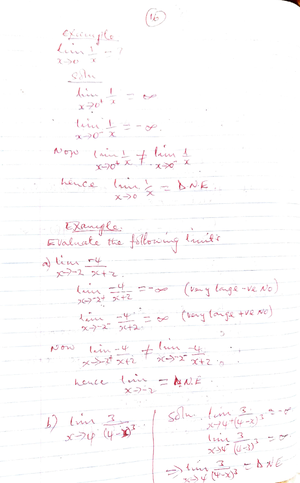 16
Example
lim x→0 1/x
Soln
lim x→0⁺ 1/x = ∞
lim x→0⁻ 1/x = -∞.
Now lim x→0⁺ 1/x ≠ lim x→0⁻ 1/x
hence lim x→0 1/x = DNE.
Example
Evaluate the following limits
a) lim x→-2 -4/x+2.
lim x→-2⁺ -4/x+2 = -∞ (very large -ve No)
lim x→-2⁻ -4/x+2 = ∞ (very large +ve NO)
Now lim x→-2⁺ -4/x+2 ≠ lim x→-2⁻ -4/x+2.
hence lim x→-2 = DNE.
b) lim x→4 3/(4-x)³
Soln. lim x→4⁺ 3/(4-x)³ = -∞
lim x→4⁻ 3/(4-x)³ = ∞
⇒ lim x→4 3/(4-x)³ = DNE